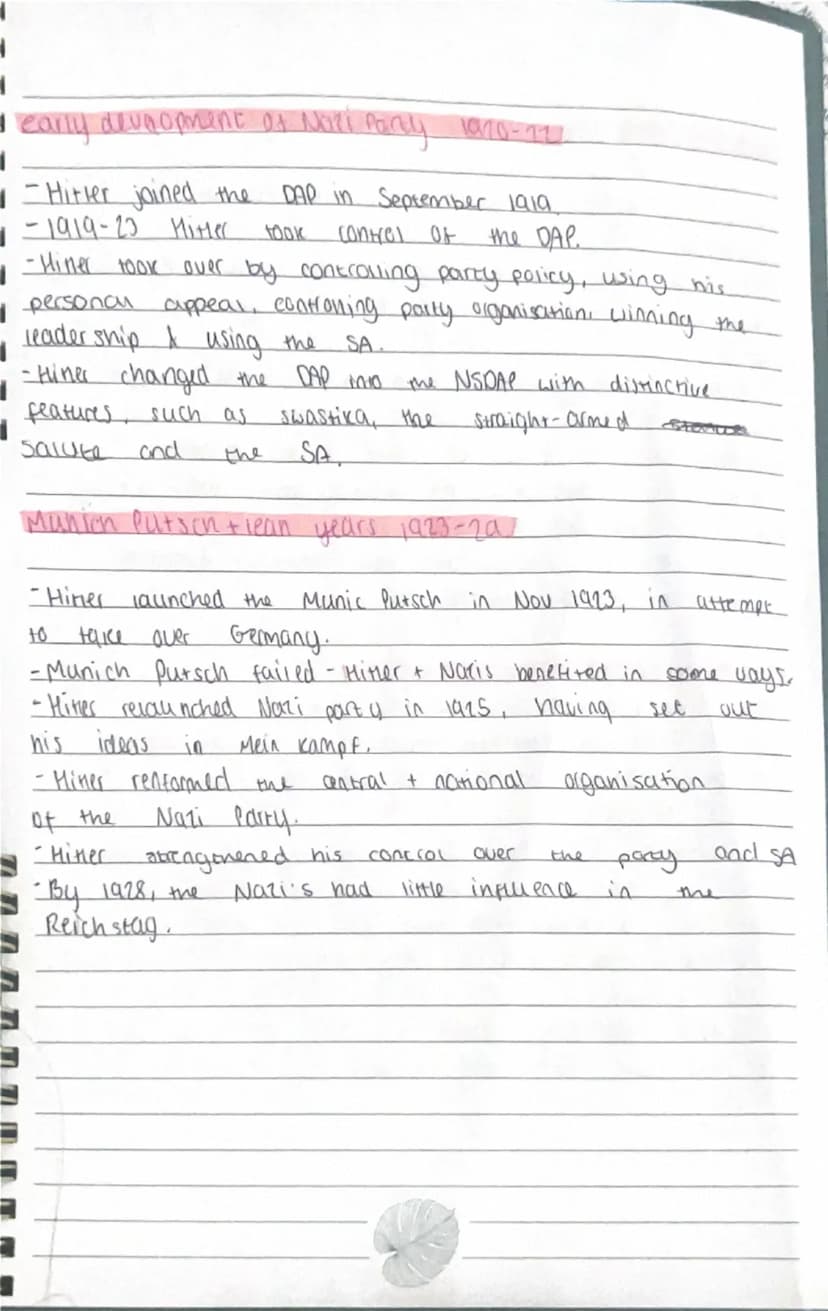 early development of Nazi Party 1920-22
- Hitler joined the DAP in September 1919
- 1919-23 Hitler took control of the DAP.
- Hitler took over by controlling party policy, using his
personal appeal, controlling party organisation, winning the
leadership & using the SA.
- Hitler changed the DAP into the NSDAP with distinctive
features, such as swastika, the straight-armed
salute and the SA.
Munich Putsch + lean years 1923-29
- Hitler launched the Munic Putsch in Nov 1923, in attempt
to take over Germany.
- Munich Putsch failed - Hitler + Nazis benefited in some ways.
- Hitler relaunched Nazi party in 1925, having set out
his ideas in Mein Kampf.
- Hitler reformed the central + national organisation
of the Nazi Party.
- Hitler strengthened his control over the party and SA
- By 1928, the Nazi's had little influence in the
Reichstag.